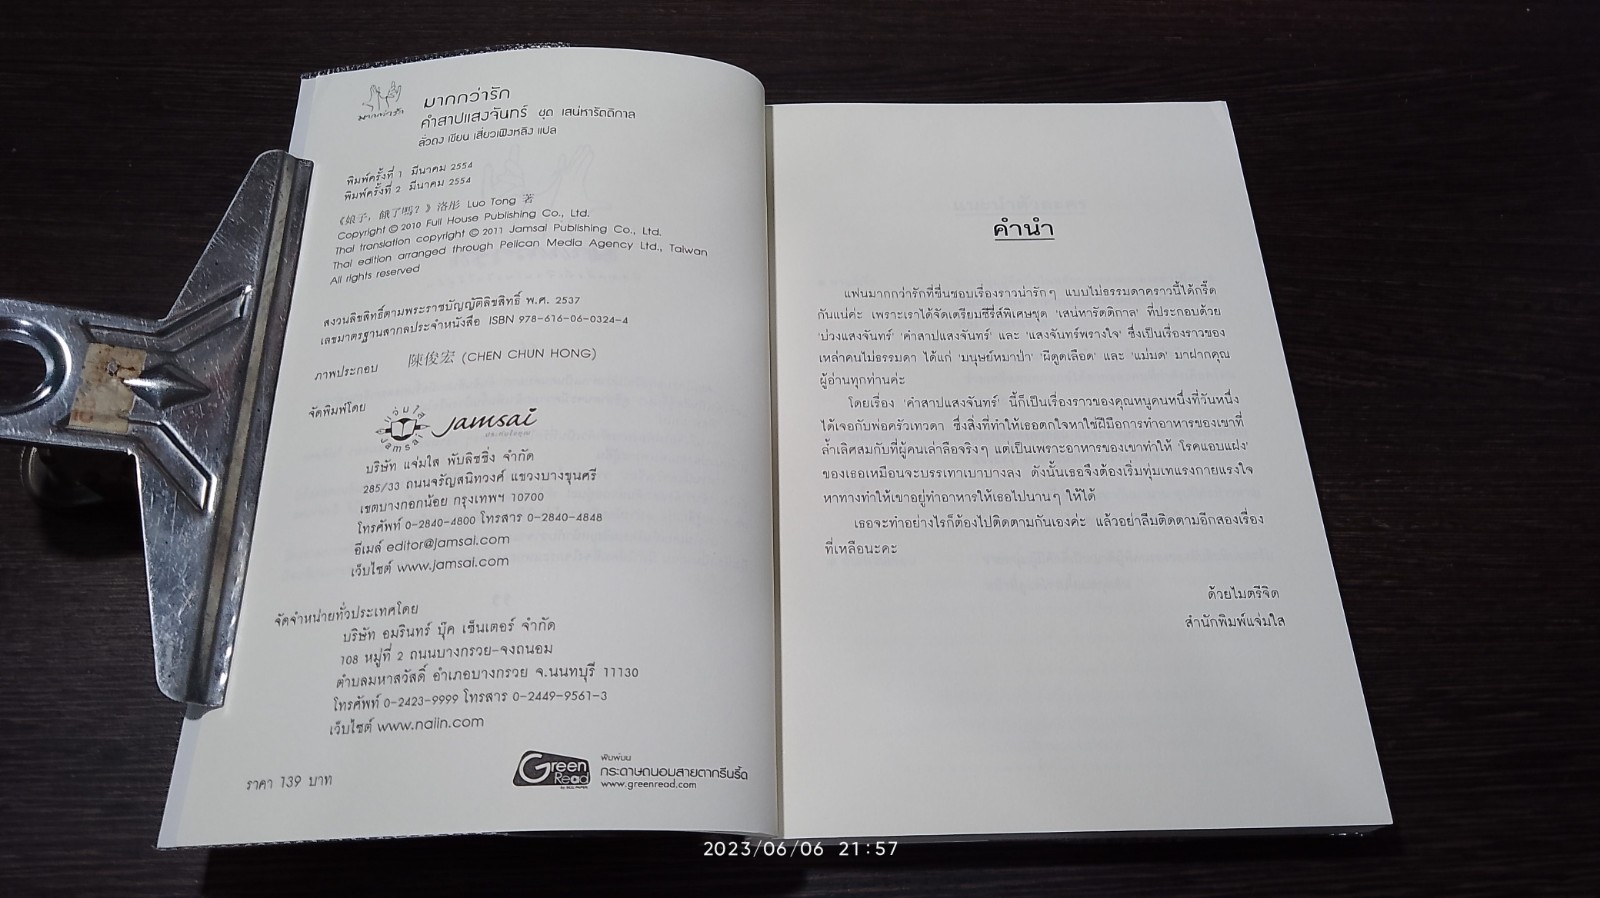 มากกว่ารัก
มากกว่ารัก
คำสาปแสงจันทร์ ชุด เสน่หารัตติกาล
ลั่วถง เขียน เสี่ยวเฟิงหลิง แปล
พิมพ์ครั้งที่ 1 มีนาคม 2554
พิมพ์ครั้งที่ 2 มีนาคม 2554
《娘子，餓了嗎？》洛彤 Luo Tong 著
Copyright © 2010 Full House Publishing Co., Ltd.
Thai translation copyright © 2011 Jamsai Publishing Co., Ltd.
Thai edition arranged through Pelican Media Agency Ltd., Taiwan
All rights reserved
สงวนลิขสิทธิ์ตามพระราชบัญญัติลิขสิทธิ์ พ.ศ. 2537
เลขมาตรฐานสากลประจำหนังสือ ISBN 978-616-06-0324-4
ภาพประกอบ 陳俊宏 (CHEN CHUN HONG)
จัดพิมพ์โดย
แจ่มใส
Jamsai
Jamsai
บริษัท แจ่มใส พับลิชชิ่ง จำกัด
285/33 ถนนจรัญสนิทวงศ์ แขวงบางขุนศรี
เขตบางกอกน้อย กรุงเทพฯ 10700
โทรศัพท์ 0-2840-4800 โทรสาร 0-2840-4848
อีเมล์ editor@jamsai.com
เว็บไซต์ www.jamsai.com
จัดจำหน่ายทั่วประเทศโดย
บริษัท อมรินทร์ บุ๊ค เซ็นเตอร์ จำกัด
108 หมู่ที่ 2 ถนนบางกรวย-จงถนอม
ตำบลมหาสวัสดิ์ อำเภอบางกรวย จ.นนทบุรี 11130
โทรศัพท์ 0-2423-9999 โทรสาร 0-2449-9561-3
เว็บไซต์ www.naiin.com
ราคา 139 บาท
Green Read
พิมพ์บน
กระดาษถนอมสายตากรีนรี้ด
www.greenread.com
คำนำ
แฟนมากกว่ารักที่ชื่นชอบเรื่องราวน่ารักๆ แบบไม่ธรรมดาคราวนี้ได้กรี๊ด
กันแน่ค่ะ เพราะเราได้จัดเตรียมซีรี่ส์พิเศษชุด 'เสน่หารัตติกาล' ที่ประกอบด้วย
'บ่วงแสงจันทร์' 'คำสาปแสงจันทร์' และ 'แสงจันทร์พรางใจ' ซึ่งเป็นเรื่องราวของ
เหล่าคนไม่ธรรมดา ได้แก่ 'มนุษย์หมาป่า' 'ผีดูดเลือด' และ 'แม่มด' มาฝากคุณ
ผู้อ่านทุกท่านค่ะ
โดยเรื่อง 'คำสาปแสงจันทร์' นี้ก็เป็นเรื่องราวของคุณหนูคนหนึ่งที่วันหนึ่ง
ได้เจอกับพ่อครัวเทวดา ซึ่งสิ่งที่ทำให้เธอตกใจหาใช่ฝีมือการทำอาหารของเขาที่
ล้ำเลิศสมกับที่ผู้คนเล่าลือจริงๆ แต่เป็นเพราะอาหารของเขาทำให้ 'โรคแอบแฝง'
ของเธอเหมือนจะบรรเทาเบาบางลง ดังนั้นเธอจึงต้องเริ่มทุ่มเทแรงกายแรงใจ
หาทางทำให้เขาอยู่ทำอาหารให้เธอไปนานๆ ให้ได้
เธอจะทำอย่างไรก็ต้องไปติดตามกันเองค่ะ แล้วอย่าลืมติดตามอีกสองเรื่อง
ที่เหลือนะคะ
ด้วยไมตรีจิต
สำนักพิมพ์แจ่มใส
2023/06/06 21:57